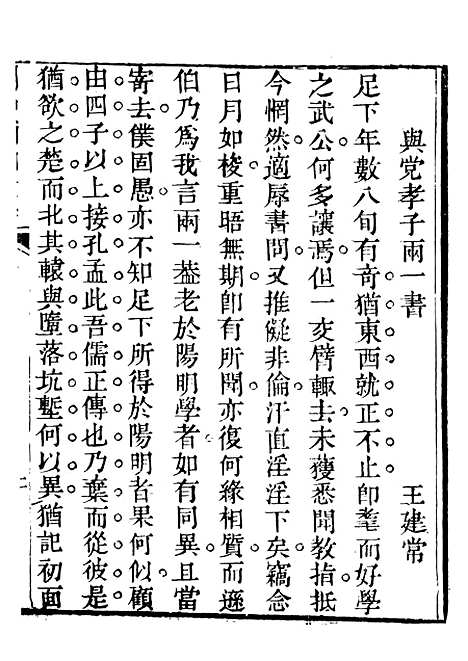 與党孝子兩一書 王建常
足下年數八旬有奇猶東西就正不止卽耄而好學
之武公何多讓焉但一交臂輙去未獲悉聞教指抵
今惘然適辱書問又推儗非倫汗直淫淫下矣竊念
日月如梭重晤無期卽有所聞亦復何緣相質而遜
伯乃爲我言兩一葢老於陽明學者如有同異且當
寄去僕固愚亦不知足下所得於陽明者果何似顧
由四子以上接孔孟此吾儒正傳也乃棄而從彼是
猶欲之楚而北其轅與墮落坑塹何以異猶記初面